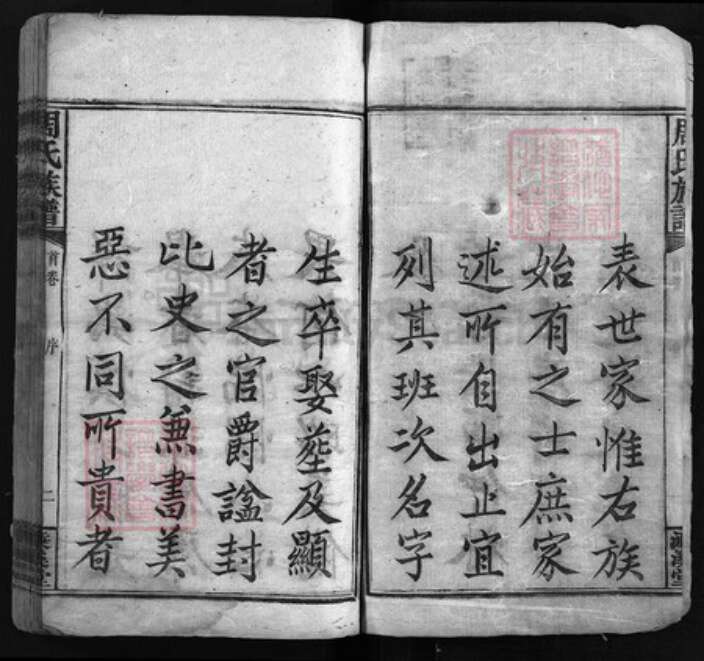 表世家惟右族
始有之士庶家
述所自出止宜
列其班次名字
生卒娶塟及顯
者之官爵諡封
比史之兼書美
惡不同所貴者
周氏族譜
首卷
序
二